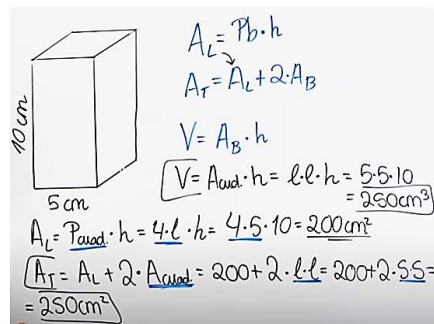 A_L = Pb·h
A_T = A_L + 2·A_B
10cm
V = A_B·h
V = Acuad.·h = l·l·h = 5·5·10
= 250cm³
5cm
A_L = Pcuad.·h = 4·l·h = 4·5·10 = 200cm²
A_T = A_L + 2·Acuad. = 200+2·l·l = 200+2·5·5=
= 250cm²